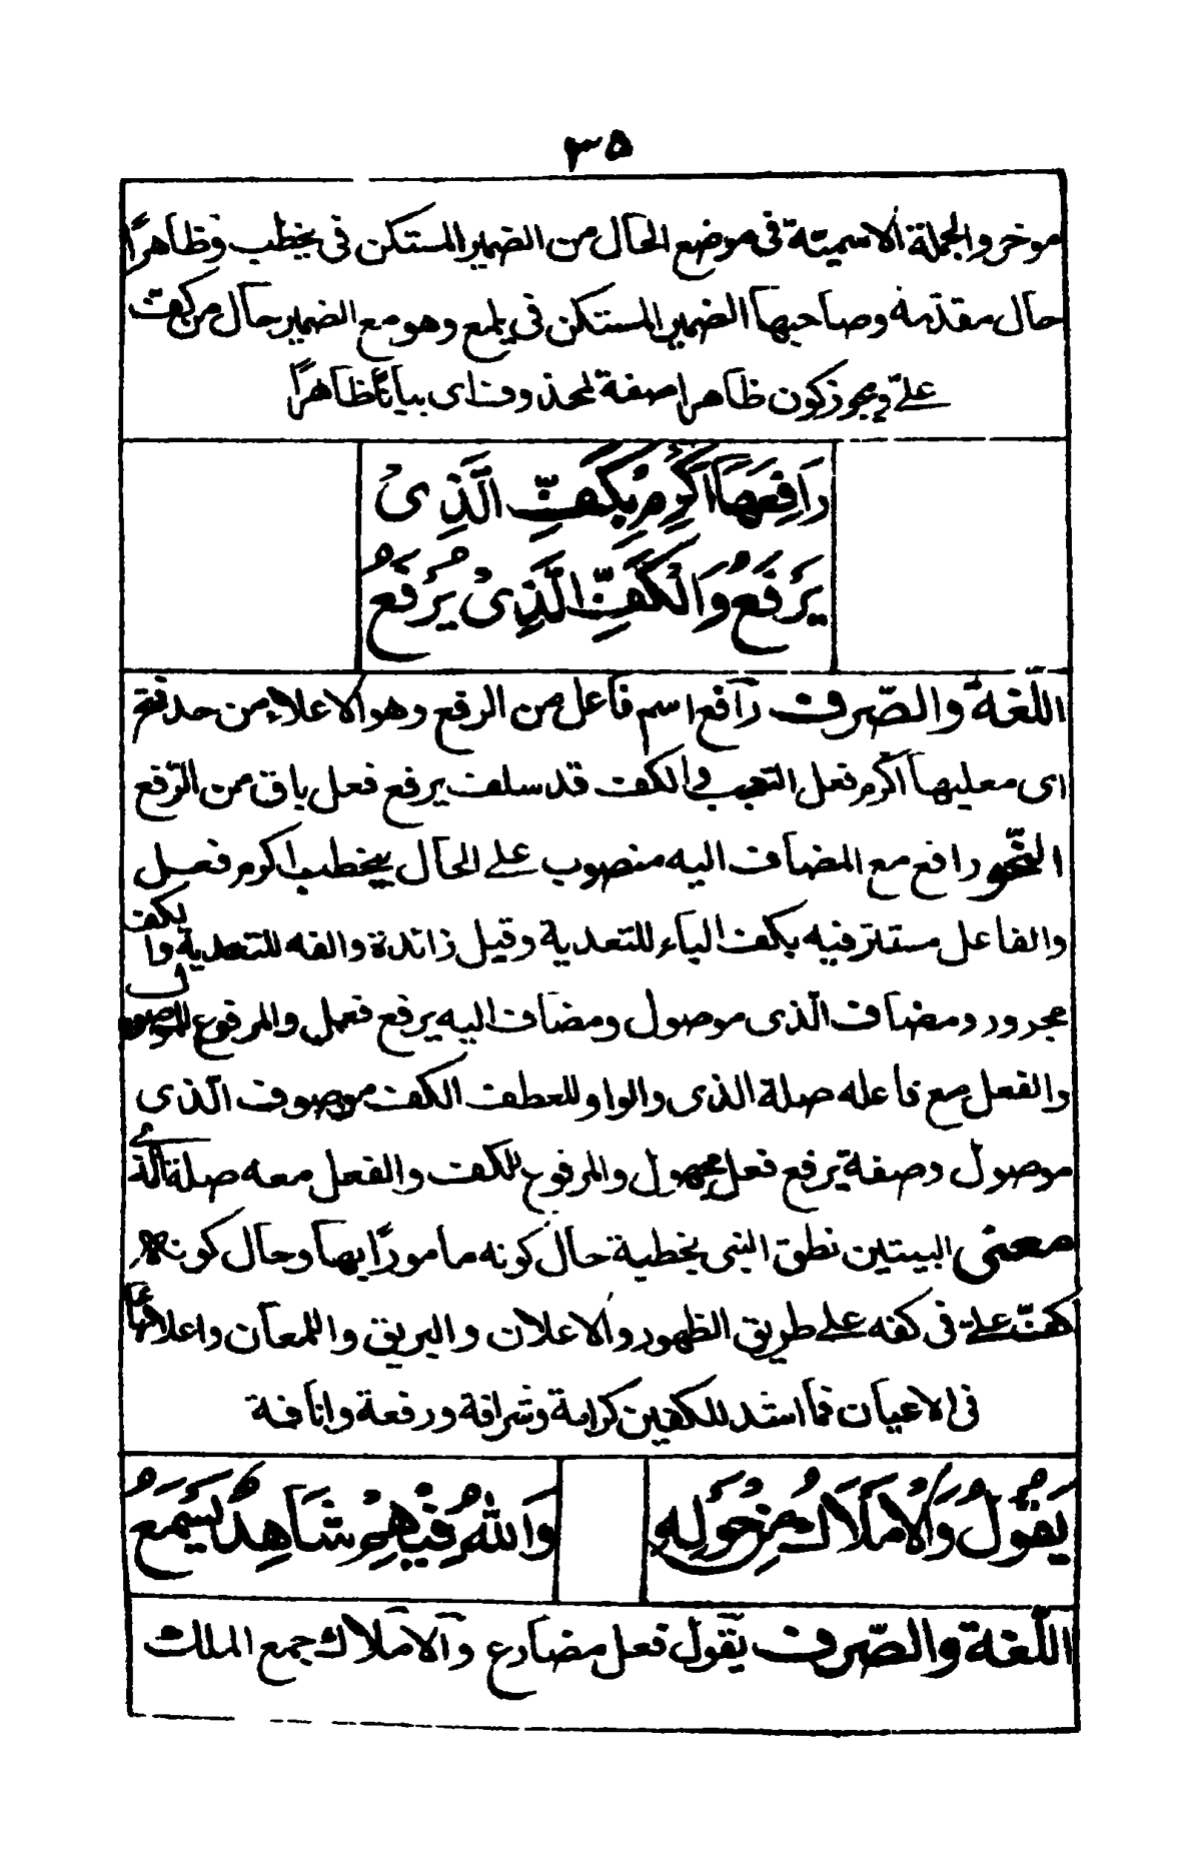 ٣٥
موخر والجملة الاسمیّة فی موضع الحال من الضمیر المستکن فی یخطب وظاهرًا
حال مقدّمة وصاحبها الضمیر المستکن فی یلمع وهو مع الضمیر حال من کفّ
علیّ ویجوز کون ظاهرا صفة لمحذوف ای بیانًا ظاهرًا
رَافِعَهَا اَکْرِمْ بِکَفِّ الَّذِیْ
یَرْفَعُ وَالْکَفِّ الَّذِیْ یُرْفَعُ
اللّغة والصّرف رافع اسم فاعل من الرفع وهو الاعلاء من حد فتح
ای معلیها اکرم فعل التعجب والکف قد سلف یرفع فعل باق من الرّفع
النّحو رافع مع المضاف الیه منصوب علی الحال بیخطب اکرم فعل
والفاعل مستتر فیه بکف الباء للتعدیة وقیل زائدة والفه للتعدیة وا لکف
مجرور ومضاف الّذی موصول ومضاف الیه یرفع فعل والمرفوع للموصول
والفعل مع فاعله صلة الذی والواو للعطف الکف موصوف الّذی
موصول وصفة یرفع فعل مجهول والمرفوع للکف والفعل معه صلة الّذی
معنی البیتین نطق النبی بخطبة حال کونه مامورًا بها وحال کون
کفّ علیّ فی کفه علی طریق الظهور والاعلان والبریق واللمعان واعلائها
فی الاعیان فما اشد للکفین کرامة وشرافة ورفعة وانافة
یَقُوْلُ وَالْاَمْلَاکُ مِنْ حَوْلِهٖ وَاللّٰهُ فِیْهِمْ شَاهِدٌ یَسْمَعُ
اللّغة والصّرف یقول فعل مضارع والاملاک جمع الملک